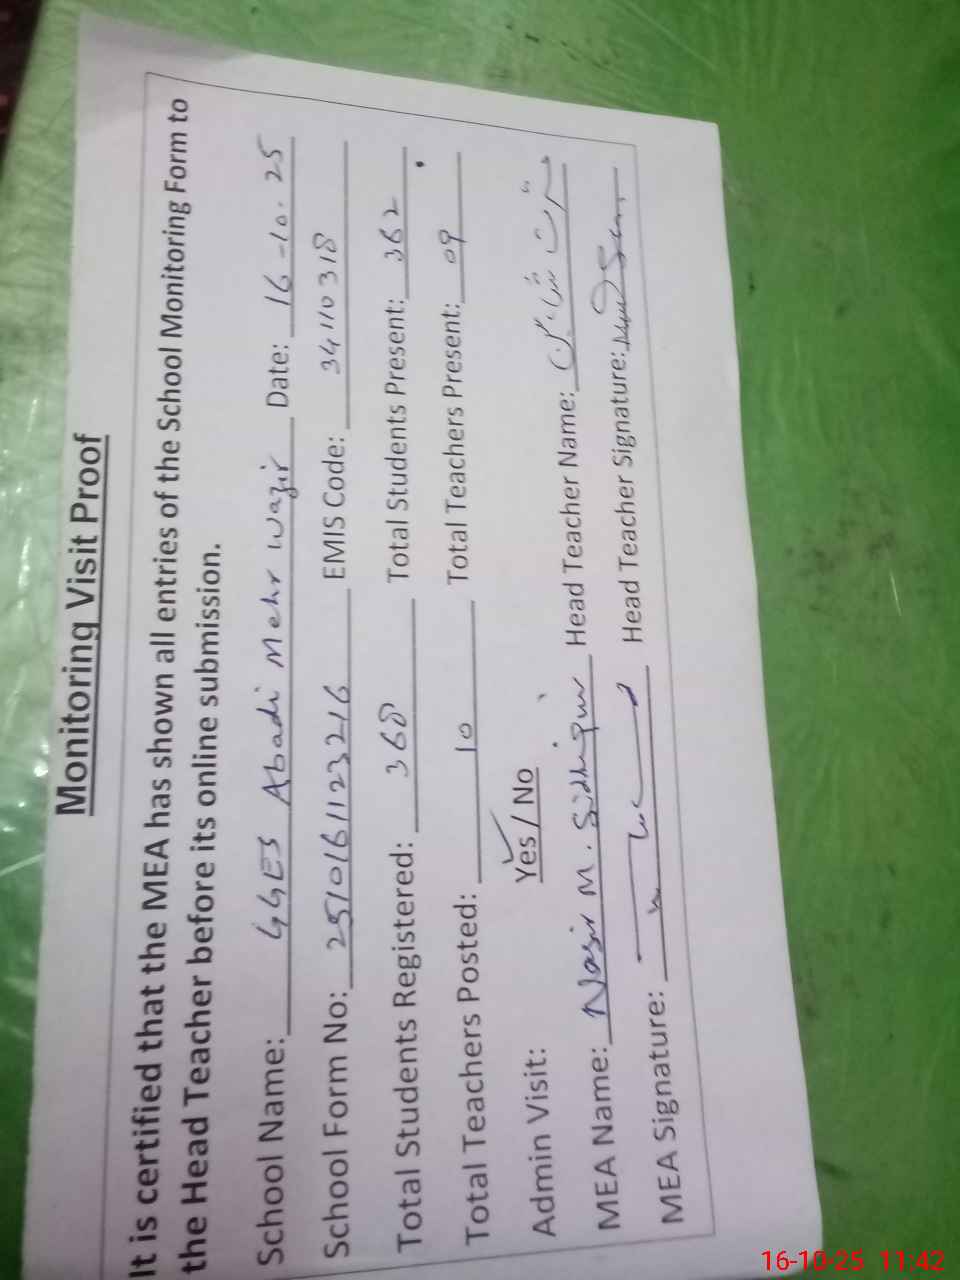 Monitoring Visit Proof
It is certified that the MEA has shown all entries of the School Monitoring Form to
the Head Teacher before its online submission.
School Name: GGES Abadi Mehr Wazir Date: 16-10-25
School Form No: 2510161123216 EMIS Code: 34110318
Total Students Registered: 368 Total Students Present: 362
Total Teachers Posted: 10 Total Teachers Present: 09
Admin Visit: Yes / No
MEA Name: Nasir M. Siddiqui Head Teacher Name:
MEA Signature: Head Teacher Signature:
16-10-25 11:42